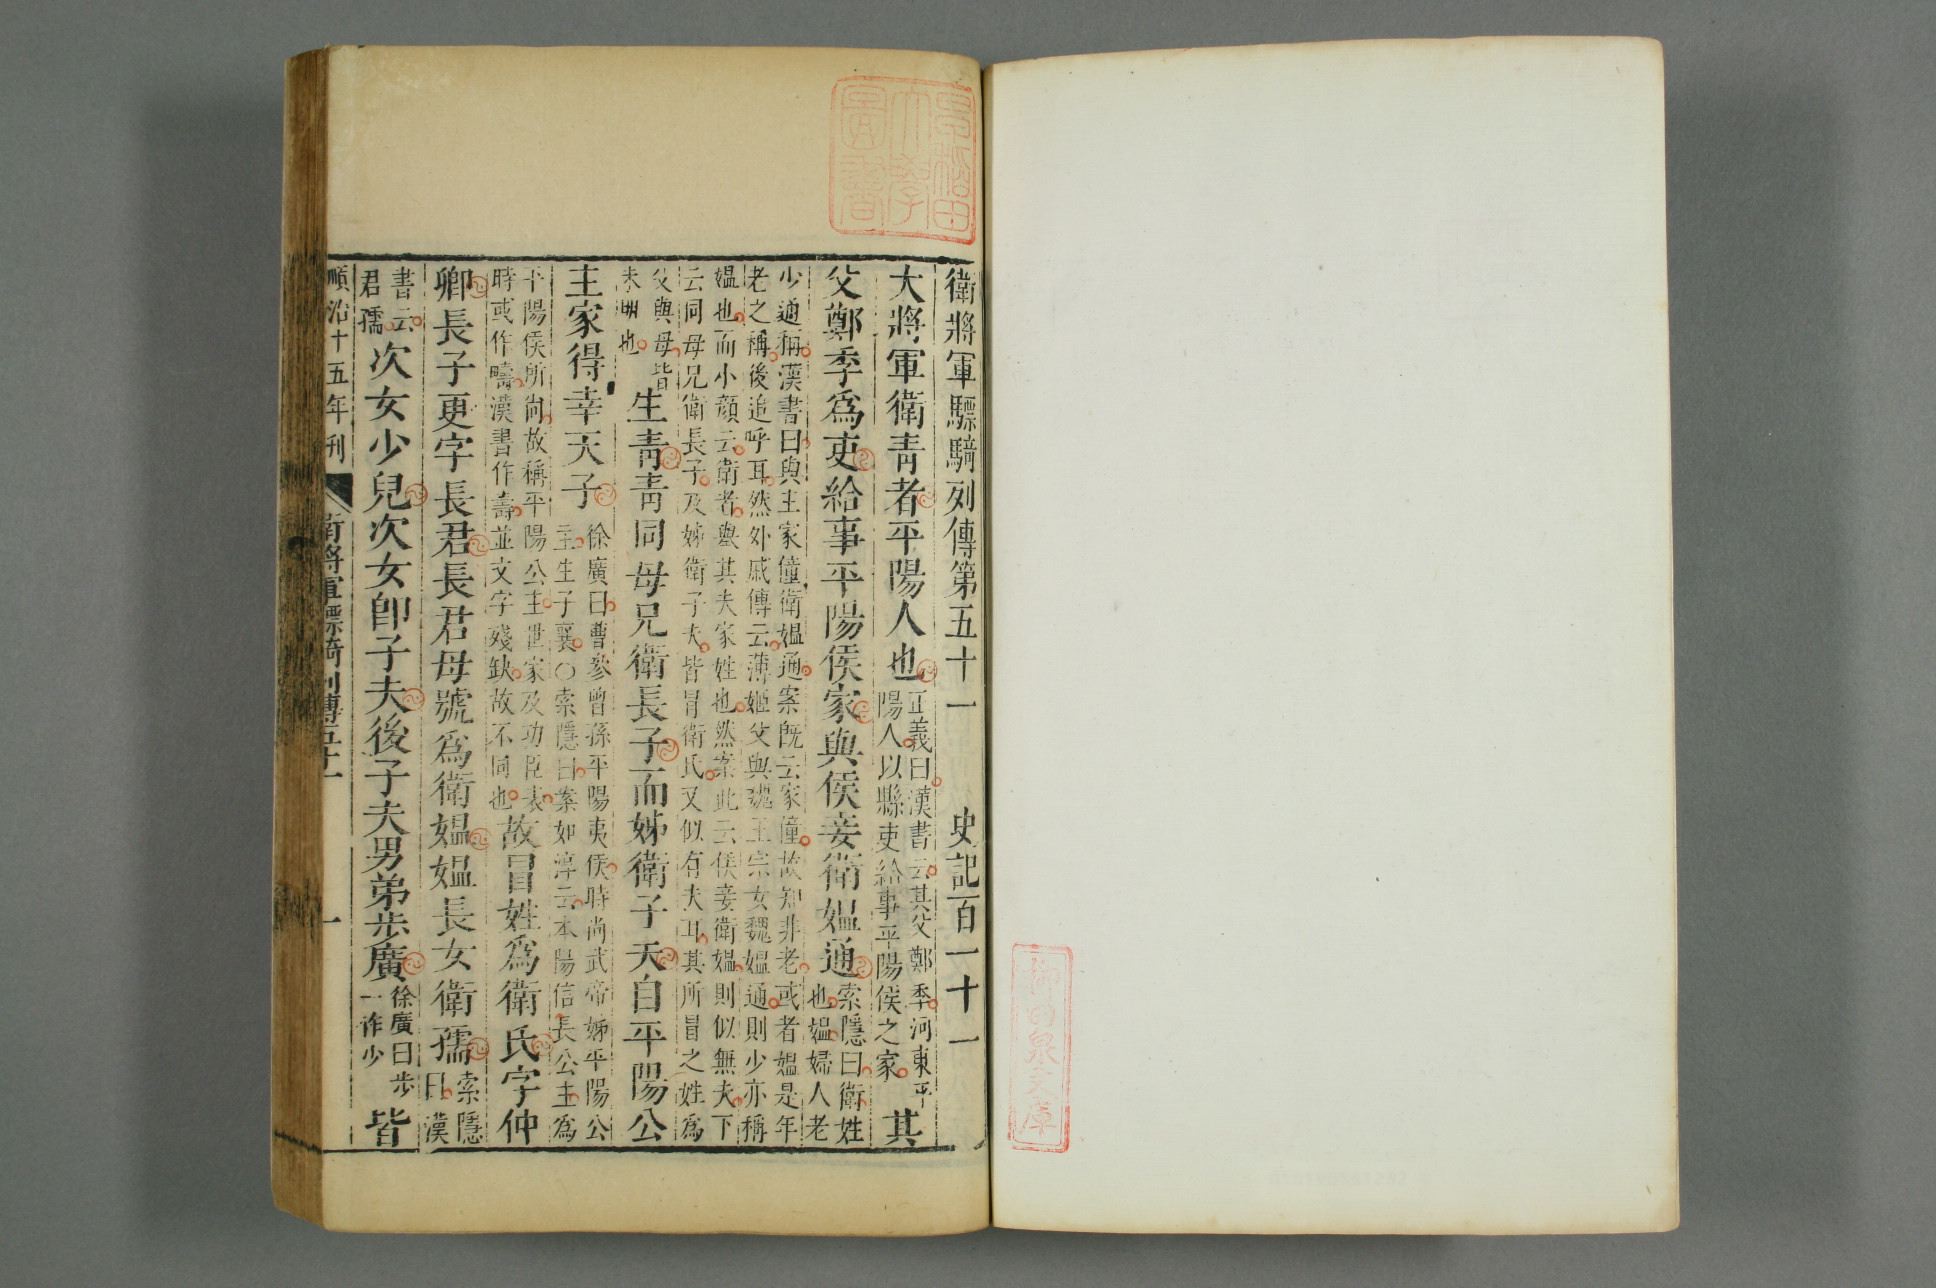 柳田泉文庫
早稲田
大學
圖書
衛將軍驃騎列傳第五十一　史記百一十一
大將軍衛青者平陽人也
正義曰漢書云其父鄭季河東平
陽人以縣吏給事平陽侯之家
其
父鄭季爲吏給事平陽侯家與侯妾衛媼通
索隱曰衛姓
也媼婦人老
少通稱漢書曰與主家僮衛媼通案既云家僮故知非老或者媼是年
老之稱後追呼耳然外戚傳云薄姬父與魏王宗女魏媼通則少亦稱
媼也而小顏云衛者舉其夫家姓也然案此云侯妾衛媼則似無夫下
云同母兄衛長子及姊衛子夫皆冒衛氏又似有夫耳其所冒之姓爲
父與母皆
未明也
生青青同母兄衛長子而姊衛子夫自平陽公
主家得幸天子
徐廣曰曹參曾孫平陽夷侯時尚武帝姊平陽公
主生子襄○索隱曰案如淳云本陽信長公主爲
平陽侯所尚故稱平陽公主世家及功臣表
時或作疇漢書作壽並文字殘缺故不同也
故冒姓爲衛氏字仲
卿長子更字長君長君母號爲衛媼媼長女衛孺
索隱
曰漢
書云
君孺
次女少兒次女即子夫後子夫男弟步廣
徐廣曰步
一作少
皆
順治十五年刊　衛將軍驃騎列傳五十一　一